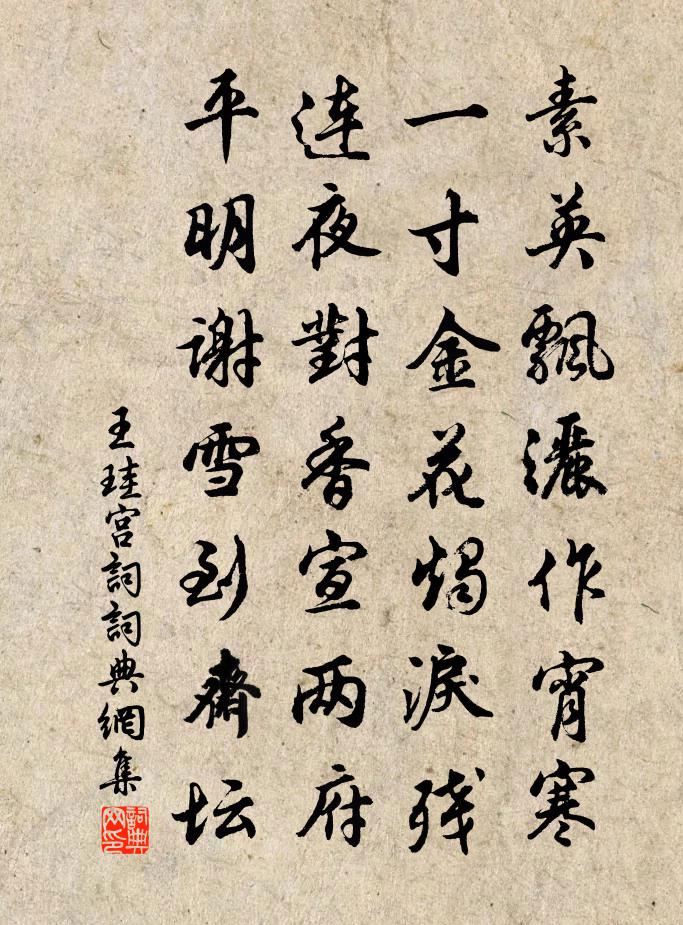 素英飄灑作宵寒
一寸金花燭淚残
連夜對香宣两府
平明謝雪到齋坛
王珪宮詞詞典網集
詞典网印